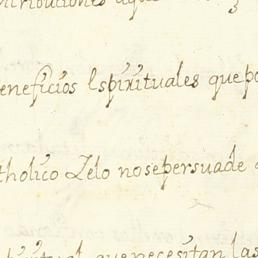 ntribuciones aqu
eneficios Espirituales que po
tholico Zelo nosepersuade
que necesitan las